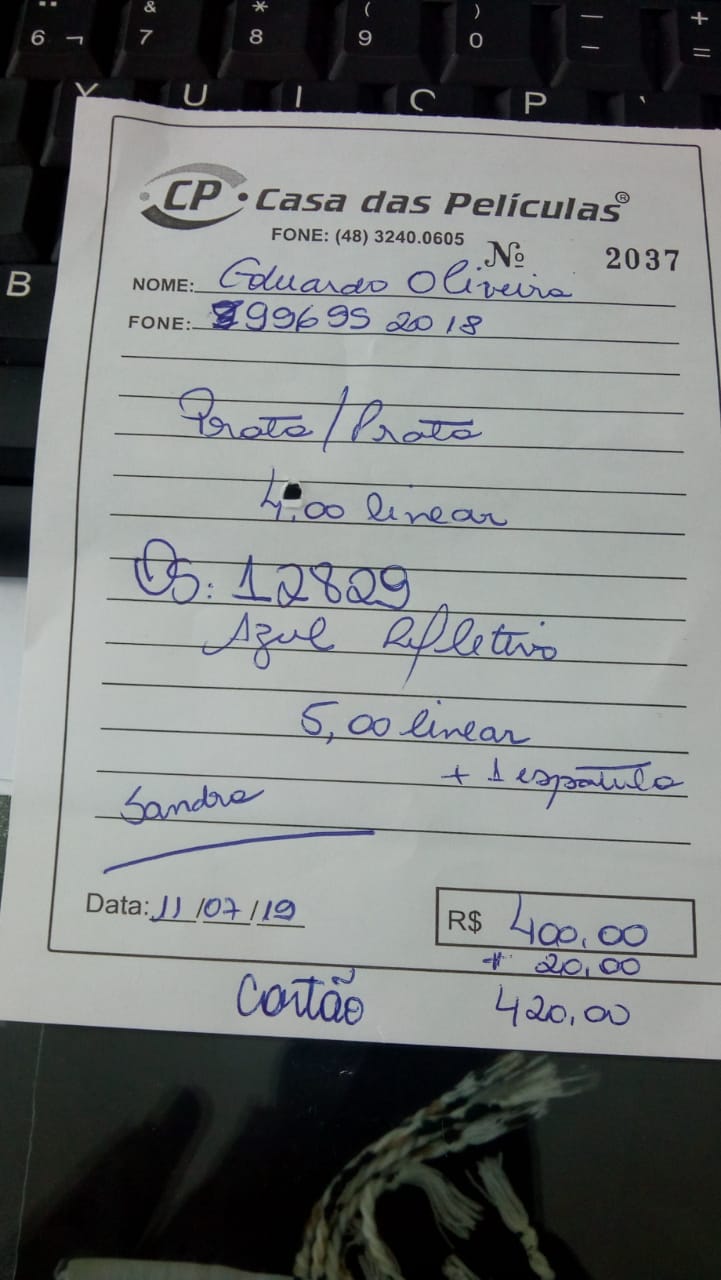 6 ¬ & 7 * 8 ( 9 ) 0 — – + =
Y U I O P `
B
CP • Casa das Películas®
FONE: (48) 3240.0605
Nº 2037
NOME: Eduardo Oliveira
FONE: 99695 2018
Prata/Prata
4,00 linear
OS: 12829
Azul Refletivo
5,00 linear
+ 1 espátula
Sandra
Data: 11/07/19
R$ 400,00
+ 20,00
Cartão 420,00